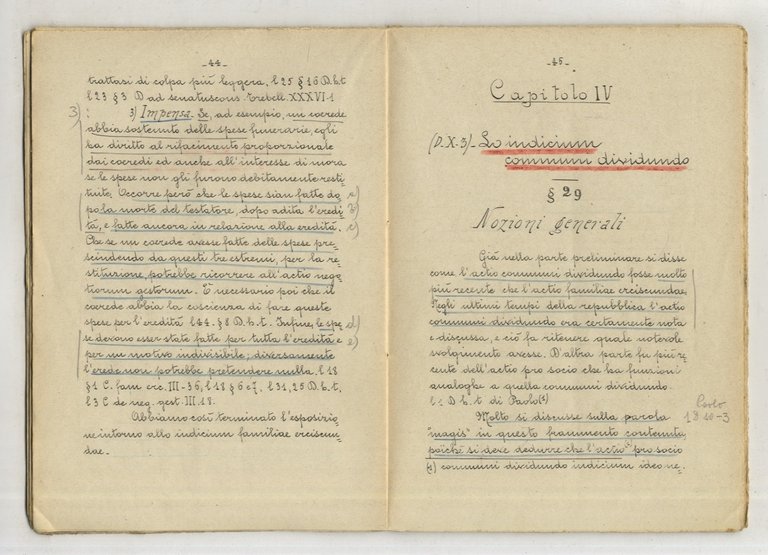 -44-
trattasi di colpa più leggera, l 25 § 16 D.h.t
l 23 § 3 D ad senatuscons. Trebell. XXXVI-1
3) : 3) Impensa. Se, ad esempio, un coerede
abbia sostenuto delle spese funerarie, egli
ha diritto al rifacimento proporzionale
dai coeredi ed anche all'interesse di mora
se le spese non gli furono debitamente resti=
tuite. Occorre però che le spese sian fatte do= a)
po la morte del testatore, dopo adita l'eredi b)
tà, e fatte ancora in relazione alla eredità. c)
Che se un coerede avesse fatte delle spese pre=
scindendo da questi tre estremi, per la re=
stituzione potrebbe ricorrere all'actio nego
tiorum gestorum. È necessario poi che il
coerede abbia la coscienza di fare queste
spese per l'eredità l 44. § 8 D.h.t. Infine, le spe d)
se devono esser state fatte per tutta l'eredità e e)
per un motivo indivisibile; diversamente
l'erede non potrebbe pretendere nulla. l 18
§ 1 C. fam erc. III-36, l 18 § 6 e 7. l 31, 25 D.h.t,
l 3 C de neg. gest. III.18.
Abbiamo così terminato l'esposizio=
ne intorno allo iudicium familiae erciscun=
dae.
-45-
Capitolo IV
(D.X.3)- Lo iudicium
communi dividundo
§ 29
Nozioni generali
Già nella parte preliminare si disse
come l'actio communi dividundo fosse molto
più recente che l'actio familiae erciscundae.
Negli ultimi tempi della repubblica l'actio
communi dividundo era certamente nota
e discussa, e ciò fa ritenere quale notevole
svolgimento avesse. D'altra parte fu più re=
cente dell'actio pro socio che ha funzioni
analoghe a quella communi dividundo
l. 1 D.h.t di Paolo(1)
Molto si discusse sulla parola
"magis" in questo frammento contenuta, Paolo
poichè si deve dedurre che l'actio pro socio 1 D 10-3
(1) communi dividundo iudicium ideo ne=